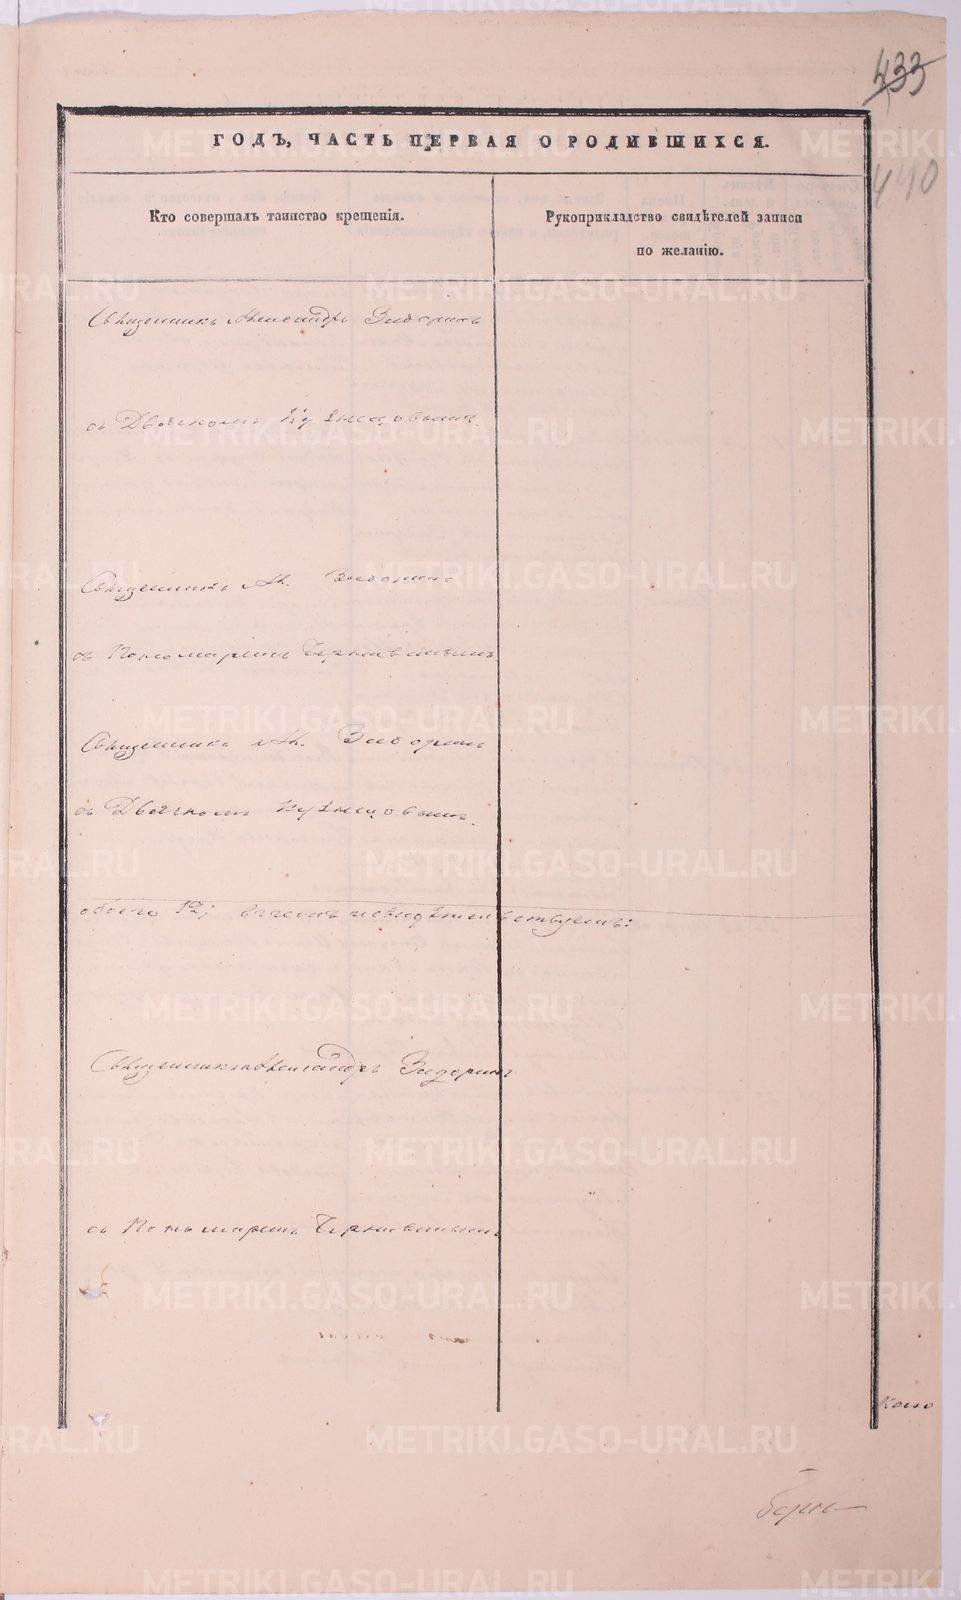 433
440
ГОДЪ, ЧАСТЬ ПЕРВАЯ О РОДИВШИХСЯ.
Кто совершалъ таинство крещенія.
Рукоприкладство свидѣтелей записи
по желанію.
Священникъ Александръ Задоринъ
съ Дьячкомъ Кузнецовымъ.
Священникъ Ал. Задоринъ
съ Пономаремъ
Священникъ Ал. Задоринъ
съ Дьячкомъ Кузнецовымъ.
обоего 12; въ чемъ и свидѣтельствуемъ:
Священникъ Александръ Задоринъ
съ Пономаремъ
METRIKI.GASO-URAL.RU